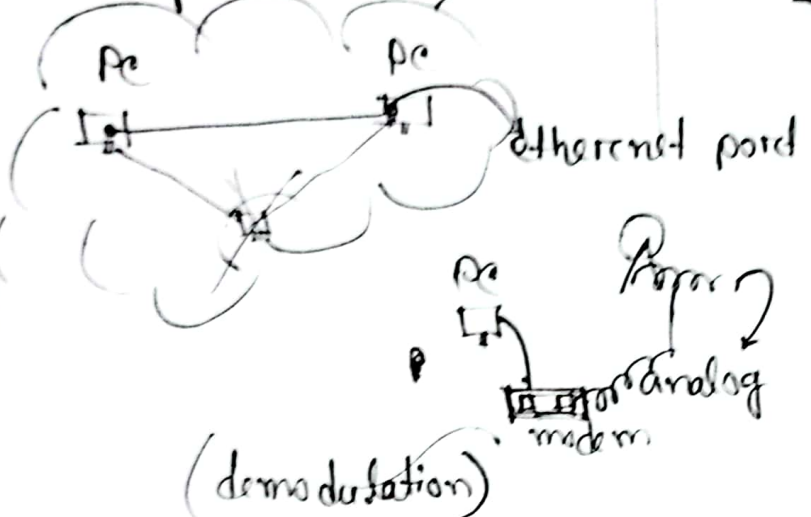 PC PC
Ethernet port
PC
analog
modem
(demodulation)